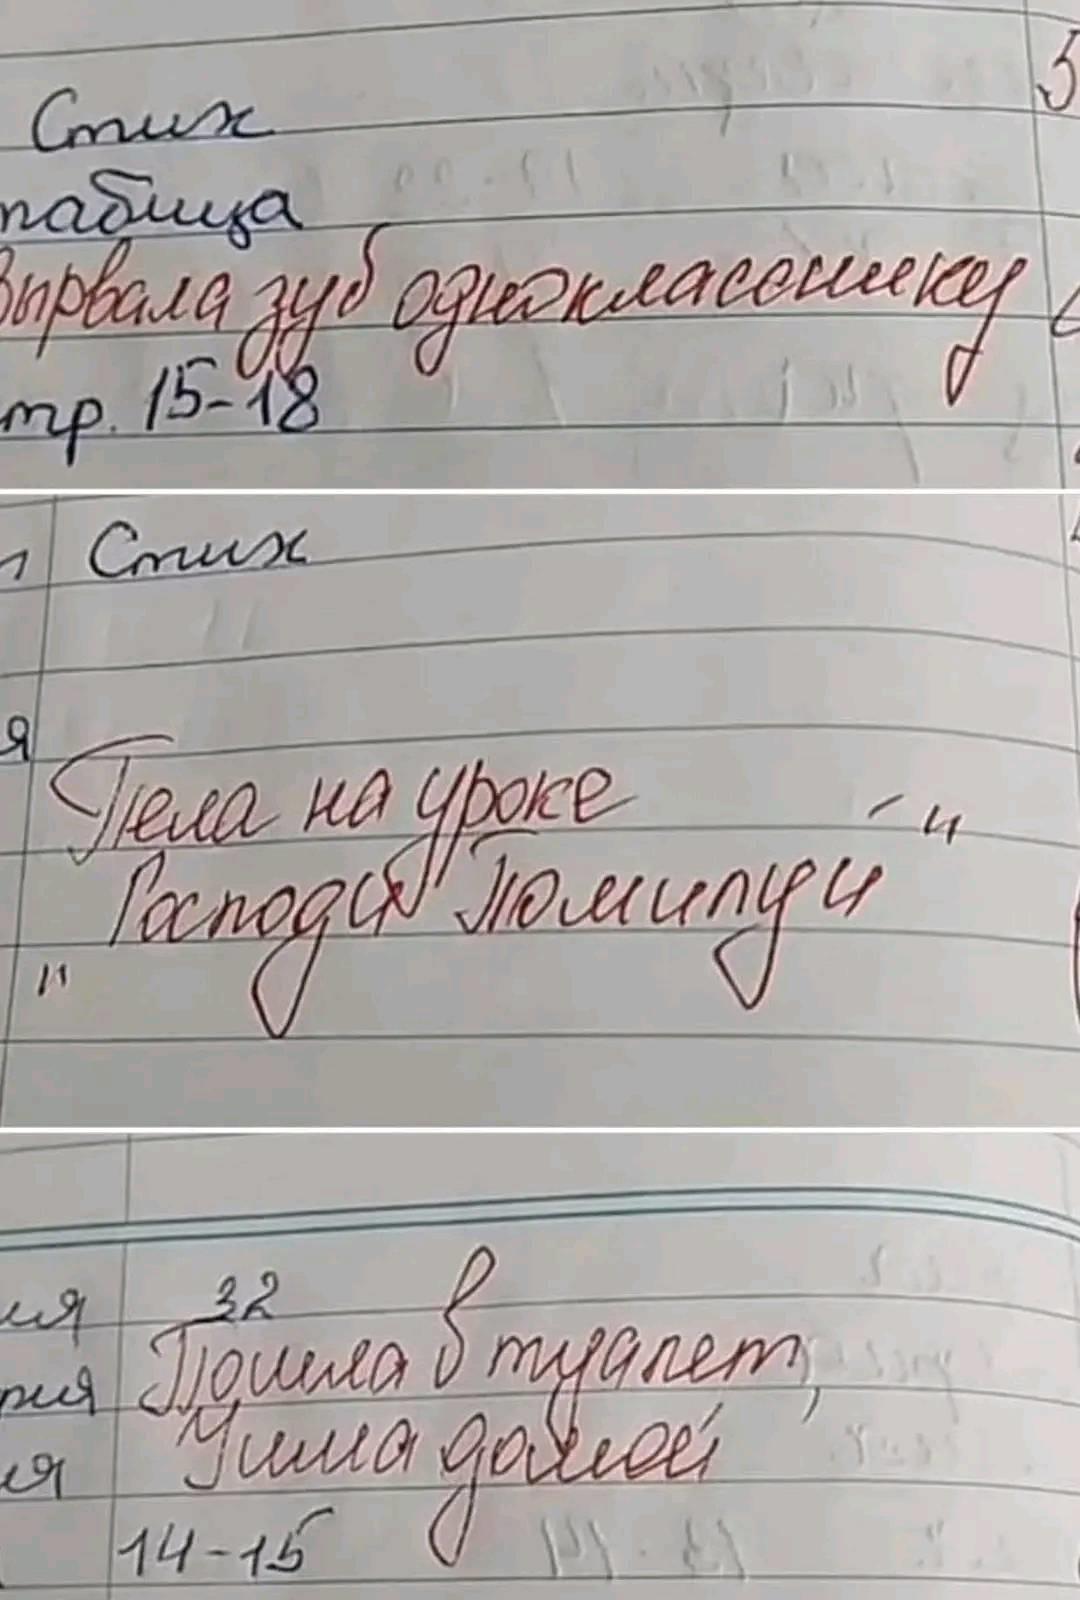 Стих
5
табица
Вырвала зуб однокласснику
тр. 15-18
Стих
я
Пела на уроке
"Господи Помилуй"
"
32
ия
Пошла в туалет,
рия
Ушла домой
ия
14-15